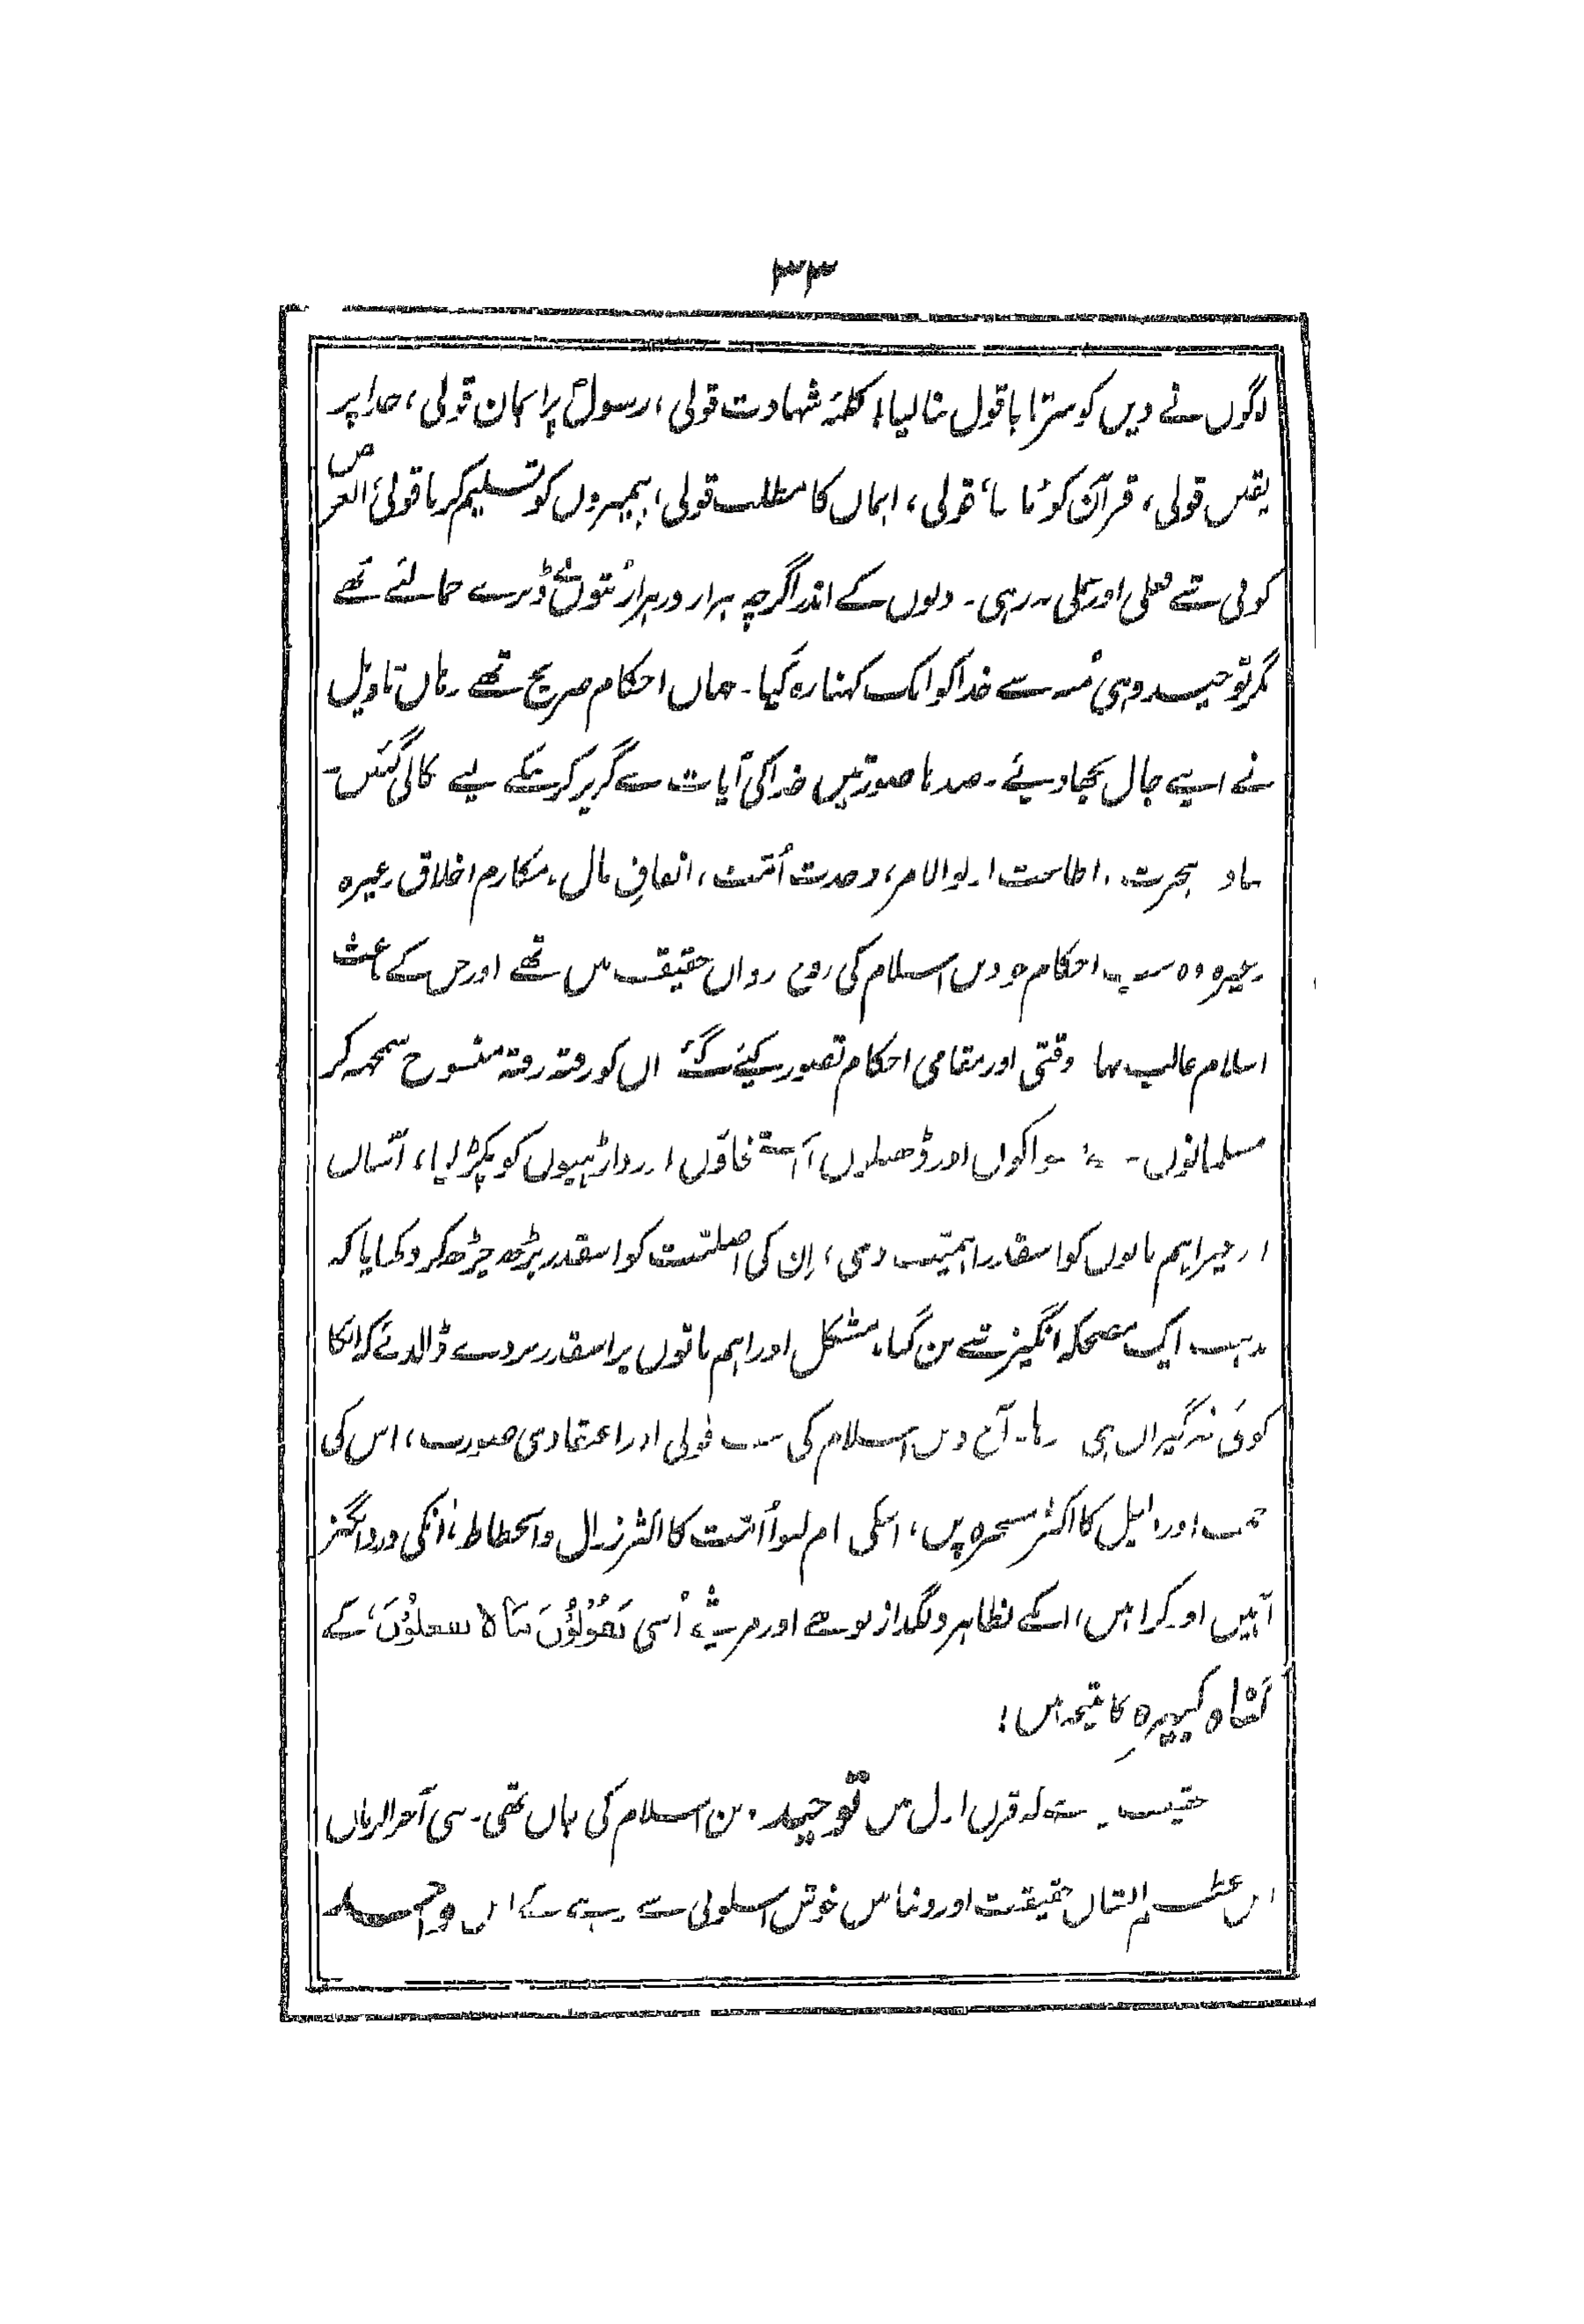 ۳۳
لوگوں نے دین کو سرتاپا قول بنا لیا، کلمۂ شہادت قولی، رسولؐ پر ایمان قولی، خدا پر
یقین قولی، قرآن کو ماننا قولی، ایمان کا مطلب قولی، پیمبروں کو تسلیم کرنا قولی، الغرض
کوئی شے فعلی اور عملی نہ رہی۔ دلوں کے اندر اگرچہ ہزار در ہزار بتوں نے ڈیرے جما لئے تھے
مگر توحید وہی منہ سے خدا کو ایک کہنا رہ گیا۔ جہاں احکام صریح تھے وہاں تاویل
نے اپنے جال بچھا دیئے۔ صدہا صورتیں خدا کی آیات سے گریز کرنیکے لیے نکالی گئیں۔
جہاد ہجرت، اطاعت اولوالامر، وحدت اُمّت، انفاقِ مال، مکارم اخلاق وغیرہ
وغیرہ وہ سب احکام جو دین اسلام کی روح رواں حقیقت میں تھے اور جن کے باعث
اسلام غالب تھا وقتی اور مقامی احکام تصور کیئے گئے ان کو رفتہ رفتہ منسوخ سمجھ کر
مسلمانوں نے مسواکوں اور ڈھیلوں، استنجاؤں اور داڑھیوں کو پکڑ لیا، آسان
اور غیر اہم باتوں کو اسقدر اہمیّت دی، اِن کی اصلیّت کو اسقدر بڑھ چڑھ کر دکھایا کہ
مذہب ایک مضحکہ انگیز شے بن گیا، مشکل اور اہم باتوں پر اسقدر پردے ڈالدئے کہ انکا
کوئی نگراں ہی نہ رہا۔ آج دین اسلام کی سب قولی اور اعتقادی صورت، اس کی
اور اکثر مسخرہ پن، اسکی نام لیوا اُمّت کا اکثر زوال و انحطاط، انکی درد انگیز
آہیں اور کراہیں، اسکے بظاہر دلگداز نوحے اور مرثیے، اُسی تَقُوْلُوْنَ مَا لَا تَفْعَلُوْنَ، کے
گناہ کبیرہ کا نتیجہ ہیں!
حقیقت یہ ہے کہ قرن اول میں توحید دین اسلام کی جان تھی۔ نبی آخر الزماں
اس عظیم الشان حقیقت اور دنیا میں خوش اسلوبی سے رہنے کے اس واحد